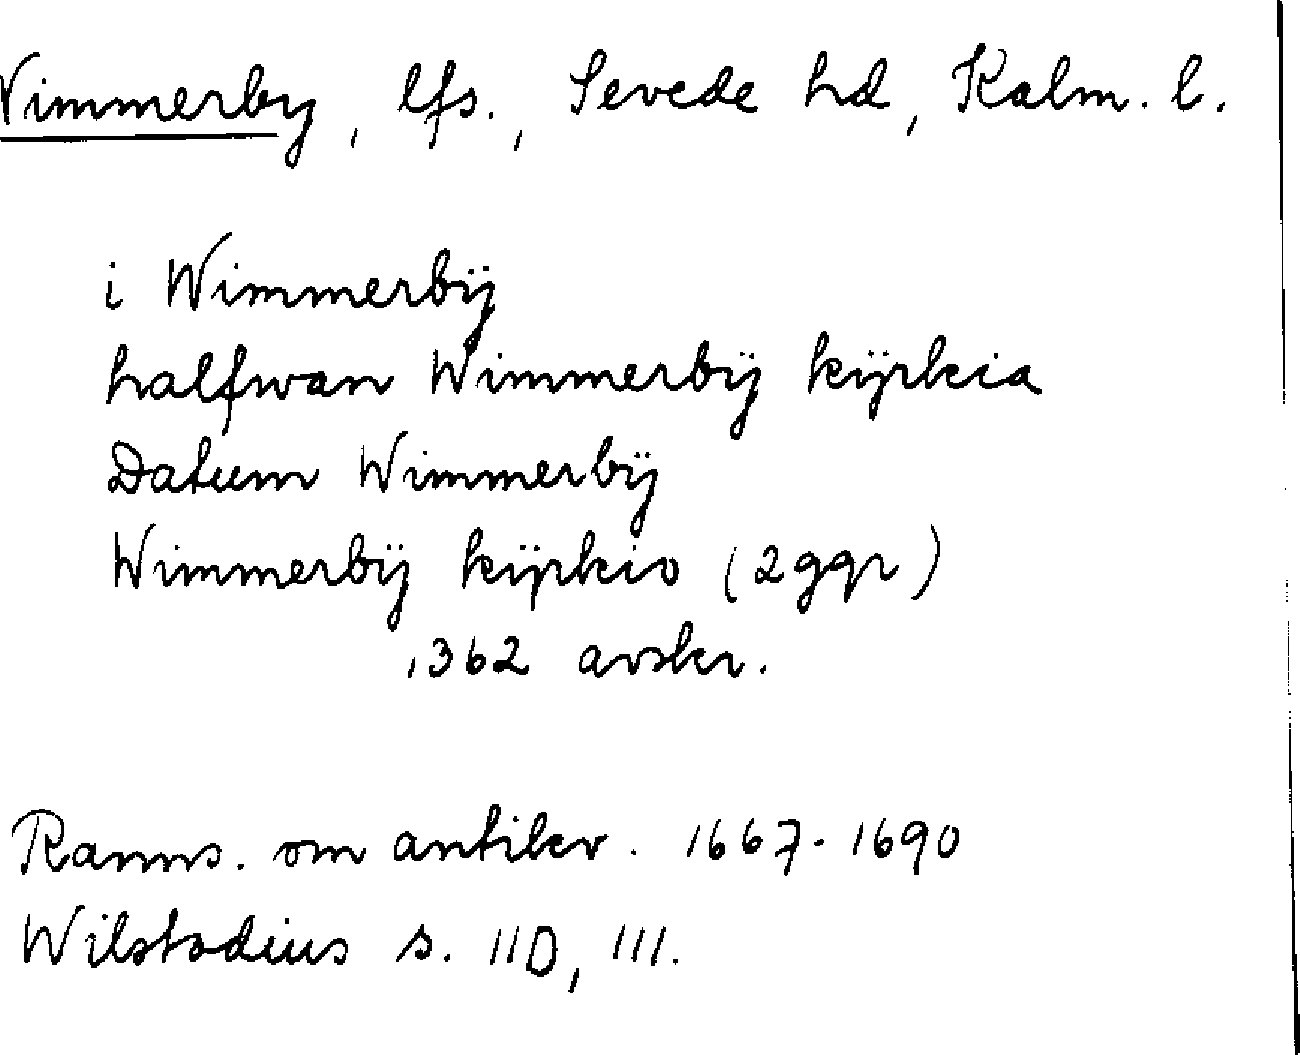 Vimmerby, lfs., Sevede hd, Kalm. l.
i Wimmerbÿ
halfwan Wimmerbÿ kÿrkia
Datum Wimmerbÿ
Wimmerbÿ kÿrkio (2ggr)
1362 avskr.
Ranns. om antikv. 1667-1690
Wilstadius s. 110, 111.